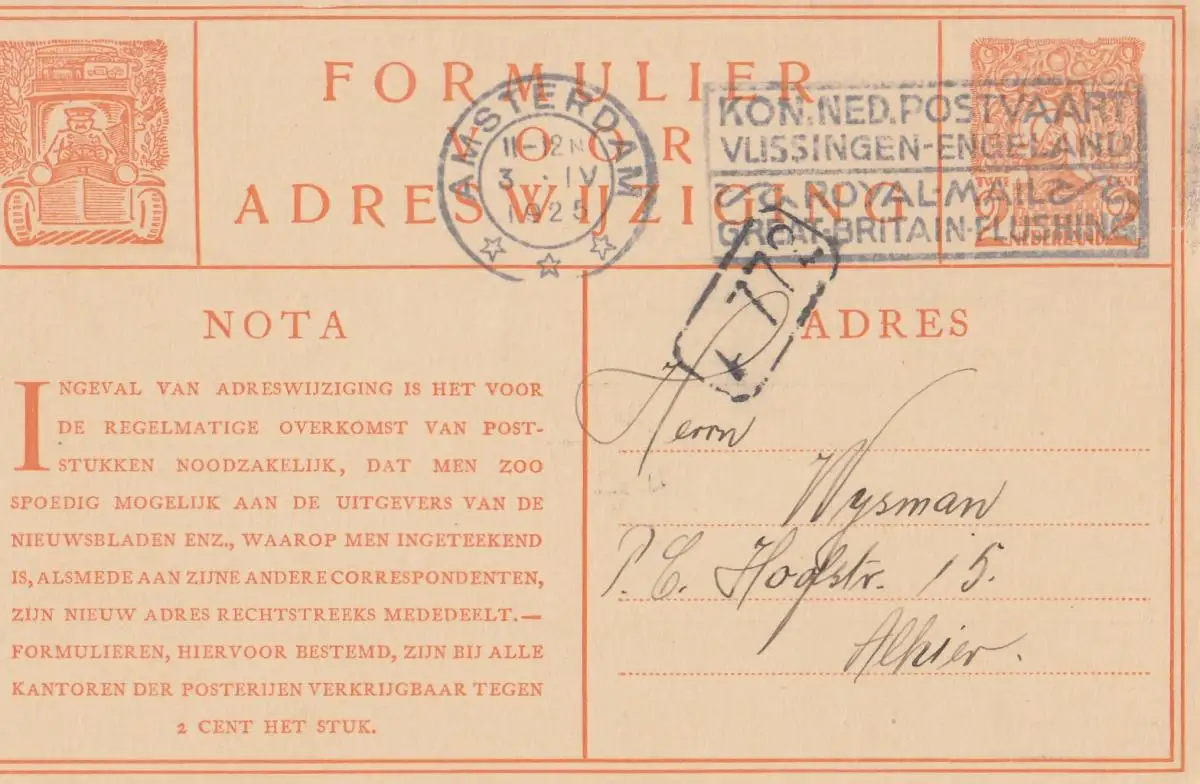 FORMULIER
VOOR
ADRESWIJZIGING
AMSTERDAM
11-12 N
3 · IV
1925
KON. NED. POSTVAART
VLISSINGEN-ENGELAND
ROYAL-MAIL
GREAT-BRITAIN-FLUSHING
TWEE CENT
2 2
NEDERLAND
NOTA
INGEVAL VAN ADRESWIJZIGING IS HET VOOR
DE REGELMATIGE OVERKOMST VAN POST-
STUKKEN NOODZAKELIJK, DAT MEN ZOO
SPOEDIG MOGELIJK AAN DE UITGEVERS VAN DE
NIEUWSBLADEN ENZ., WAAROP MEN INGETEEKEND
IS, ALSMEDE AAN ZIJNE ANDERE CORRESPONDENTEN,
ZIJN NIEUW ADRES RECHTSTREEKS MEDEDEELT.—
FORMULIEREN, HIERVOOR BESTEMD, ZIJN BIJ ALLE
KANTOREN DER POSTERIJEN VERKRIJGBAAR TEGEN
2 CENT HET STUK.
ADRES
Herrn
Wysman
P. C. Hoofstr. 15.
Alhier.